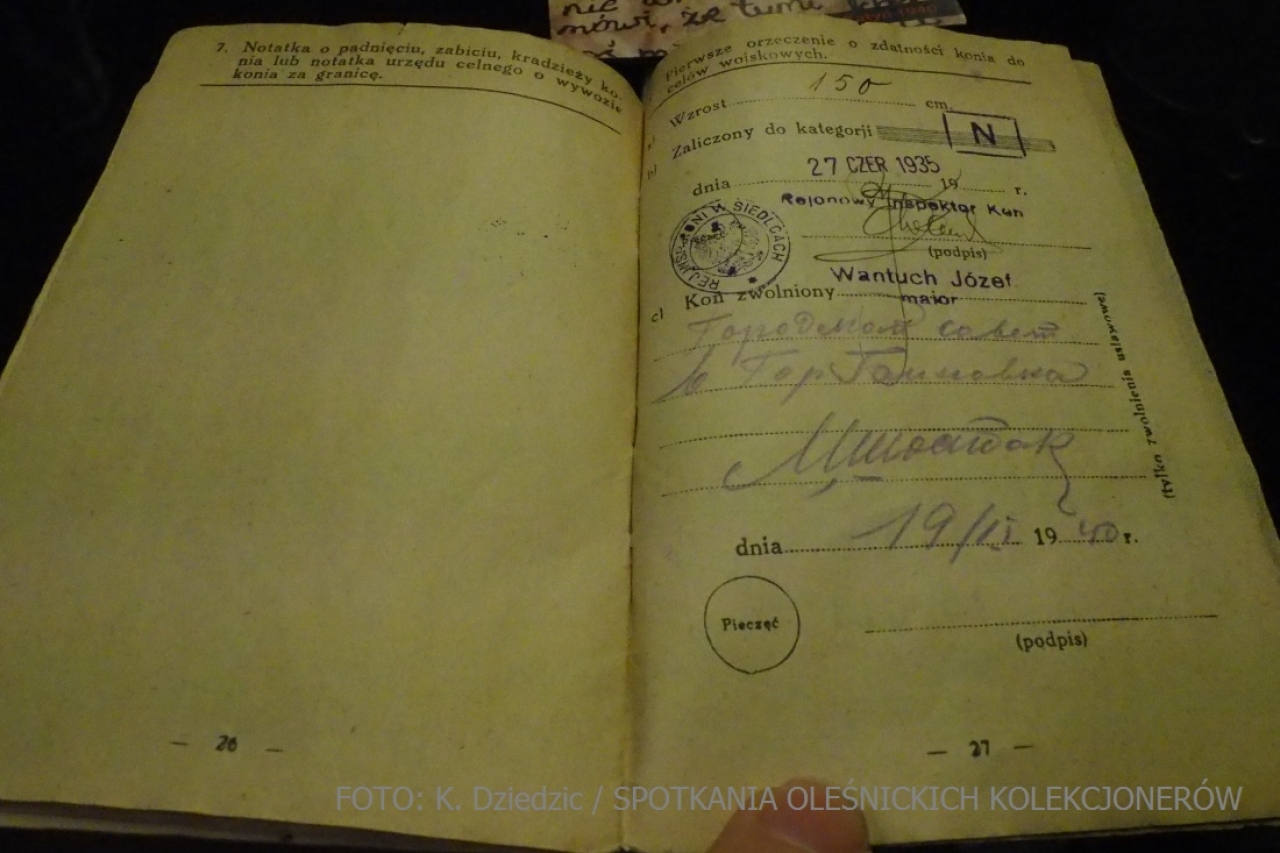 mówi, że tymi
7. Notatka o padnięciu, zabiciu, kradzieży ko-
nia lub notatka urzędu celnego o wywozie
konia za granicę.
— 26 —
Pierwsze orzeczenie o zdatności konia do
celów wojskowych.
a) Wzrost 150 cm.
b) Zaliczony do kategorji N
dnia 27 CZER 1935 19 r.
Rejonowy Inspektor Kon
(podpis)
REJ. INSP. KONI W SIEDLCACH
Wantuch Józef
major
c) Koń zwolniony
(tylko zwolnienia ustawowe)
Городской совет
в Гор
dnia 19/II 1940 r.
Pieczęć
(podpis)
— 27 —
FOTO: K. Dziedzic / SPOTKANIA OLEŚNICKICH KOLEKCJONERÓW